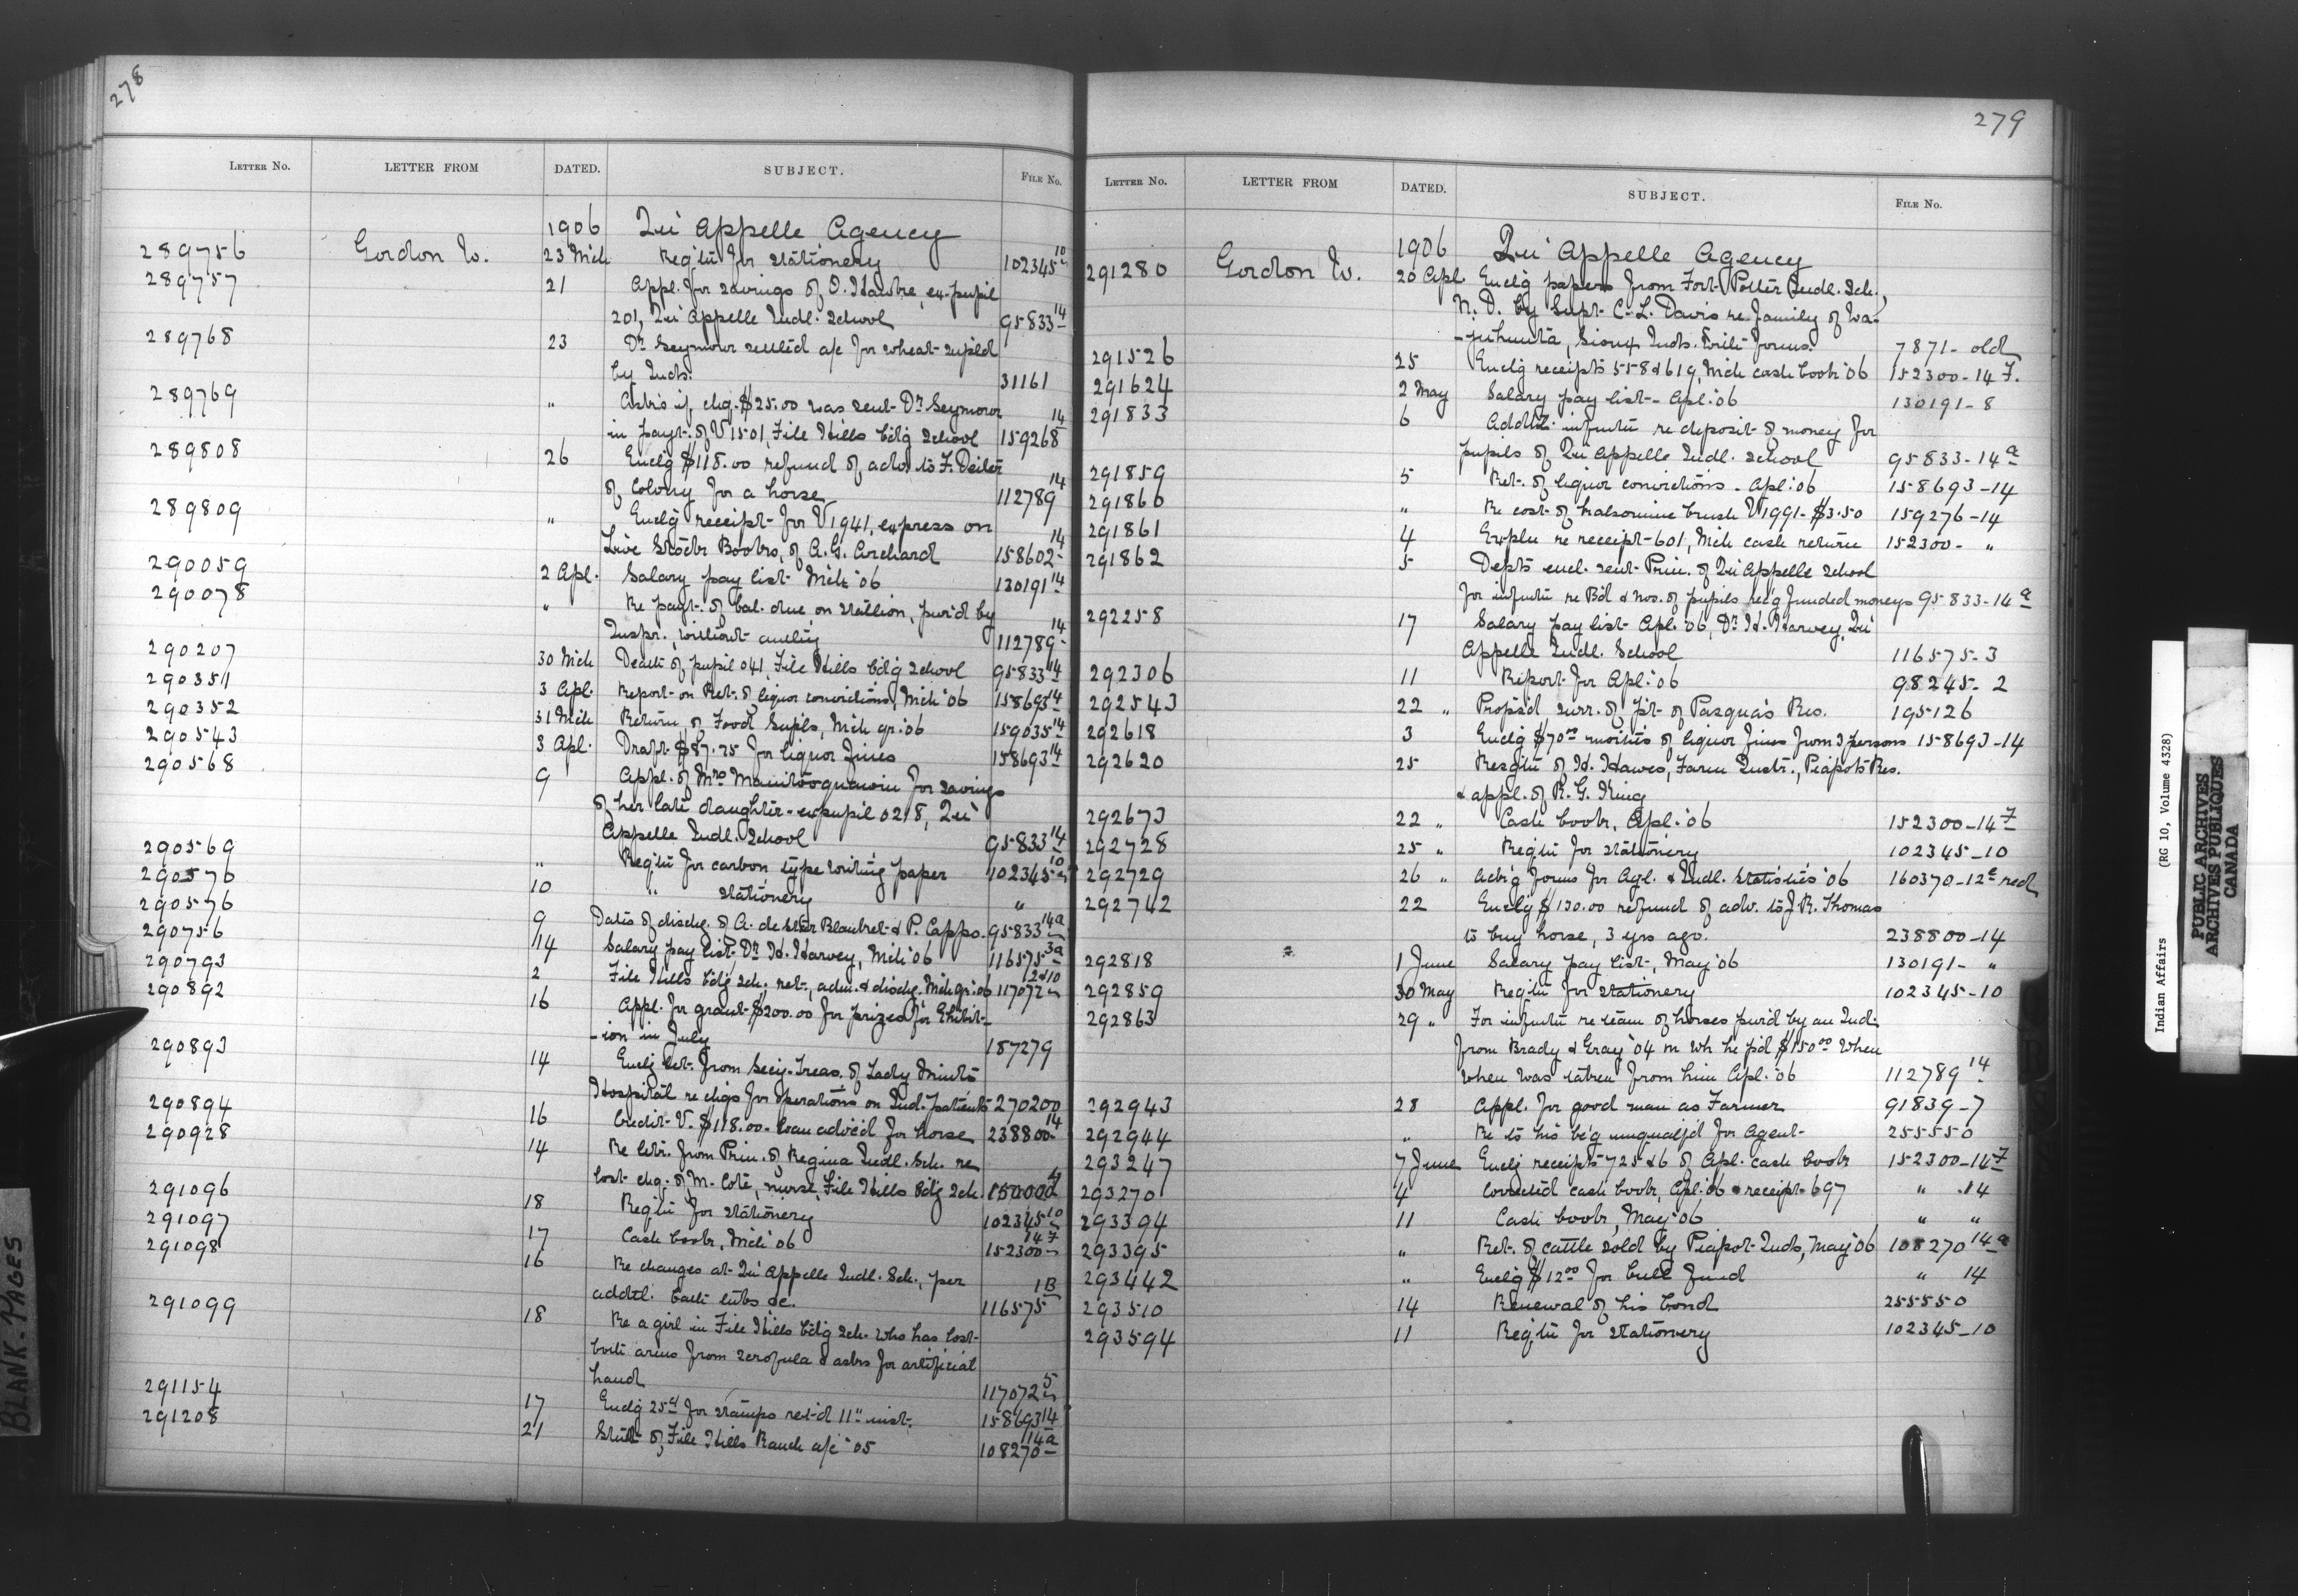 278
LETTER NO. LETTER FROM DATED. SUBJECT. FILE NO.
1906 Qu'Appelle Agency
289756 Gordon W. 23 Mch Req'tn for stationery 102345 10
289757 21 Appl. for savings of O. , ex-pupil
201, Qu'Appelle Indl. School 95833 14
289768 23 Dr Seymour settled a/c for wheat supld
by Inds. 31161
289769 " Asks if chq. $25.00 was sent Dr Seymour
in payt. of V1501, File Hills bd'g School 159268 14
289808 26 Enclg $118.00 refund of adv. to F. Deiter
of Colony for a horse 112789 14
289809 " Enclg receipt for V1941, express on
Live Stock Books, of A.G. Orchard 158602 14
290059 2 Apl. Salary pay list Mch '06 130191 14
290078 " Re payt. of bal. due on stallion, pur'd by
Inspr., without authy 112789 14
290207 30 Mch Death of pupil 041, File Hills bd'g School 95833 14
290351 3 Apl. Report on Ret. of liquor convictions, Mch '06 158693 14
290352 31 Mch Return of Food Supls, Mch qr. '06 159035 14
290543 3 Apl. Draft $87.75 for liquor fines 158693 14
290568 9 Appl. of Mrs for savings
of her late daughter - expupil 0218, Qu'
Appelle Indl. School 95833 14
290569 " Req'tn for carbon type writing paper 102345 10
290570 10 " stationery "
290576 9 Dates of dischg. of A. & P. Cappo. 95833 14a
290756 14 Salary pay list Dr H. Harvey, Mch '06 116575 3a
290793 2 File Hills bd'g Sch. ret., adm. & dischg. Mch qr. '06 117072 2&10
290892 16 Appl. for grant $200.00 for prizes for Exhibit-
-ion in July 187279
290893 14 Enclg let. from Secy-Treas. of Lady Minto
Hospital re chgs for operations on Ind. patients 270200
290894 16 Credit V. $118.00 - loan adv'c'd for horse 238800 14
290928 14 Re letr. from Prin. of Regina Indl. Sch. re
lost chq. of M. Coté, nurse, File Hills Bdg Sch. 150000
291096 18 Req'tn for stationery 102345 10
291097 17 Cash book, Mch '06 152300 14 F
291098 16 Re changes at Qu'Appelle Indl. Sch., per
addtl. bath tubs &c. 116575 1B
291099 18 Re a girl in File Hills bd'g Sch. who has lost
both arms from scrofula & asks for artificial
hand 117072 5
291154 17 Enclg 25¢ for stamps ret'd 11" inst. 158693 14
291208 21 Stmt of File Hills Ranch a/c '05 108270 14a
279
LETTER NO. LETTER FROM DATED. SUBJECT. FILE NO.
1906 Qu'Appelle Agency
291280 Gordon W. 20 Apl. Enclg papers from Fort Totter Indl. Sch.,
N.D. by Supt. C.L. Davis re family of Wa-
, Sioux Inds. forms. 7871 - old
291526 25 Enclg receipts 558 & 619, Mch cash book '06 152300-14 F.
291624 2 May Salary pay list - Apl. '06 130191-8
291833 6 Addtl. infmtn re deposit of money for
pupils of Qu'Appelle Indl. School 95833-14 a
291859 5 Ret. of liquor convictions - Apl. '06 158693-14
291860 " Re cost of kalsomine brush V1991 - $3.50 159276-14
291861 4 Expln re receipt 601, Mch cash return 152300- "
291862 5 Depts encl. sent Prin. of Qu'Appelle School
for infmtn re Bd & nos. of pupils re'g funded moneys 95833-14 a
292258 17 Salary pay list Apl. '06, Dr H. Harvey, Qu'
Appelle Indl. School 116575-3
292306 11 Report for Apl. '06 98245-2
292543 22 " Propsd surr. of pt. of Pasqua's Res. 195126
292618 3 Enclg $70.00 moities of liquor fines from 3 persons 158693-14
292620 25 Resgtn of H. Hawes, Farm Instr., Piapot's Res.
& appl. of R.G. King
292673 22 " Cash book, Apl. '06 152300-14 F
292728 25 " Req'tn for stationery 102345-10
292729 26 " Ack'g forms for Agl. & Indl. Statistics '06 160370-12 a red
292742 22 Enclg $130.00 refund of adv. to J.R. Thomas
to buy horse, 3 yrs ago. 238800-14
292818 1 June Salary pay list, May '06 130191- "
292859 30 May Req'tn for stationery 102345-10
292863 29 " For infmtn re team of horses pur'd by an Ind.
from Brady & Gray '04 on wh he p'd $150.00 when
when was taken from him Apl. '06 112789 14
292943 28 Appl. for good man as Farmer 91839-7
292944 " Re to his b'g unqualf'd for Agent 255550
293247 7 June Enclg receipts 725 & 6 of Apl. cash book 152300-14 F
293270 4 Corrected cash book, Apl. '06 & receipt 697 " .14
293394 11 Cash book, May '06 " "
293395 " Ret. of cattle sold by Piapot Inds, May '06 108270 14 a
293442 " Enclg $12.00 for bull fund " 14
293510 14 Renewal of his bond 255550
293594 11 Req'tn for stationery 102345-10
BLANK PAGES
Indian Affairs (RG 10, Volume 4328)
PUBLIC ARCHIVES
ARCHIVES PUBLIQUES
CANADA